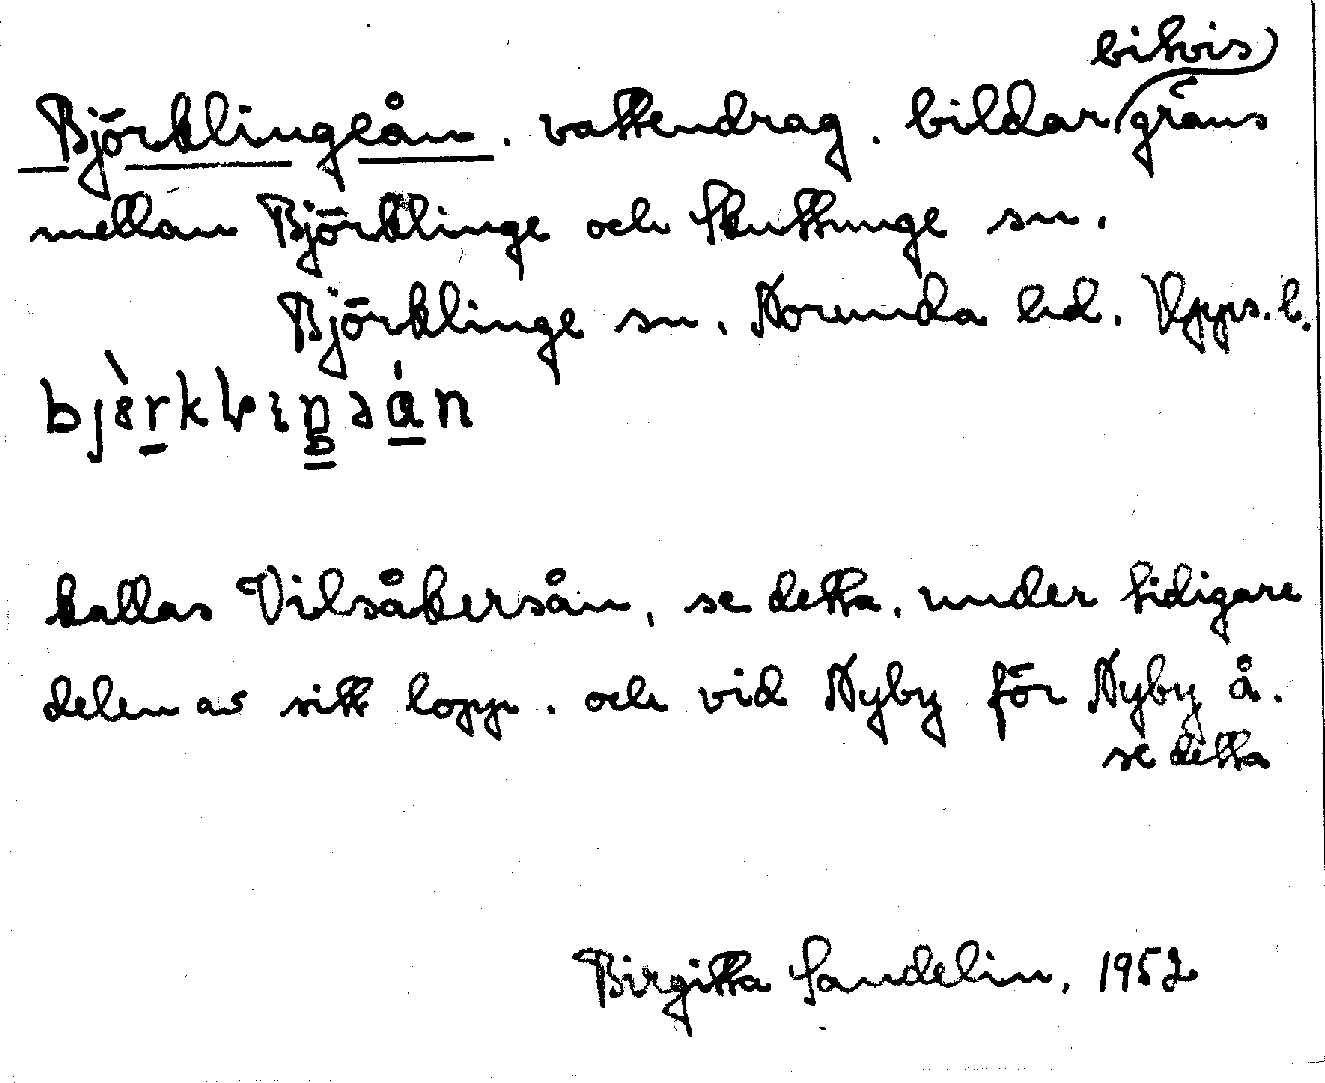 bitvis
Björklingeån. vattendrag. bildar gräns
mellan Björklinge och Skuttunge sn.
Björklinge sn. Norunda hd. Upps. l.
kallas Vilsåkersån, se detta, under tidigare
delen av sitt lopp. och vid Nyby för Nyby å.
se detta
Birgitta Sandelin, 1952